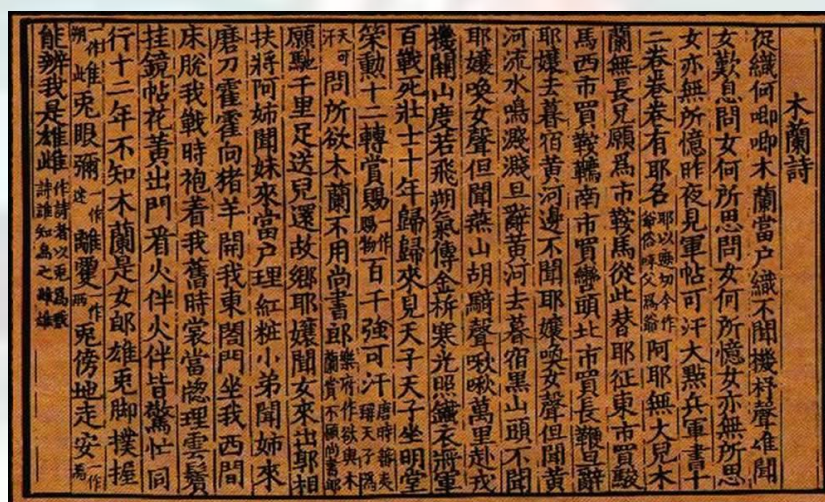 木蘭詩
促織何唧唧木蘭當户織不聞機杼聲唯聞
女歎息問女何所思問女何所憶女亦無所思
女亦無所憶昨夜見軍帖可汗大點兵軍書十
二卷卷卷有耶名耶以遮切今作爺俗呼父爲爺阿耶無大兒木
蘭無長兄願爲市鞍馬從此替耶征東市買駿
馬西市買鞍韉南市買轡頭北市買長鞭旦辭
耶孃去暮宿黄河邊不聞耶孃喚女聲但聞黄
河流水鳴濺濺旦辭黄河去暮宿黑山頭不聞
耶孃喚女聲但聞燕山胡騎聲啾啾萬里赴戎
機關山度若飛朔氣傳金柝寒光照鐵衣將軍
百戰死壯士十年歸歸來見天子天子坐明堂
策勳十二轉賞賜一作賜物百千強可汗唐時蕃夷稱天子爲
天可汗問所欲木蘭不用尚書郎樂府作欲與木蘭賞不願尚書郎
願馳千里足送兒還故鄉耶孃聞女來出郭相
扶將阿姊聞妹來當户理紅粧小弟聞姊來
磨刀霍霍向猪羊開我東閤門坐我西間
床脫我戰時袍着我舊時裳當窓理雲鬢
挂鏡帖花黄出門看火伴火伴皆驚忙同
行十二年不知木蘭是女郎雄兎脚撲握
一作朔雌兎眼彌一作迷離雙一作兩兎傍地走安一作焉
能辨我是雄雌作詩者以詩誰知烏之雌雄